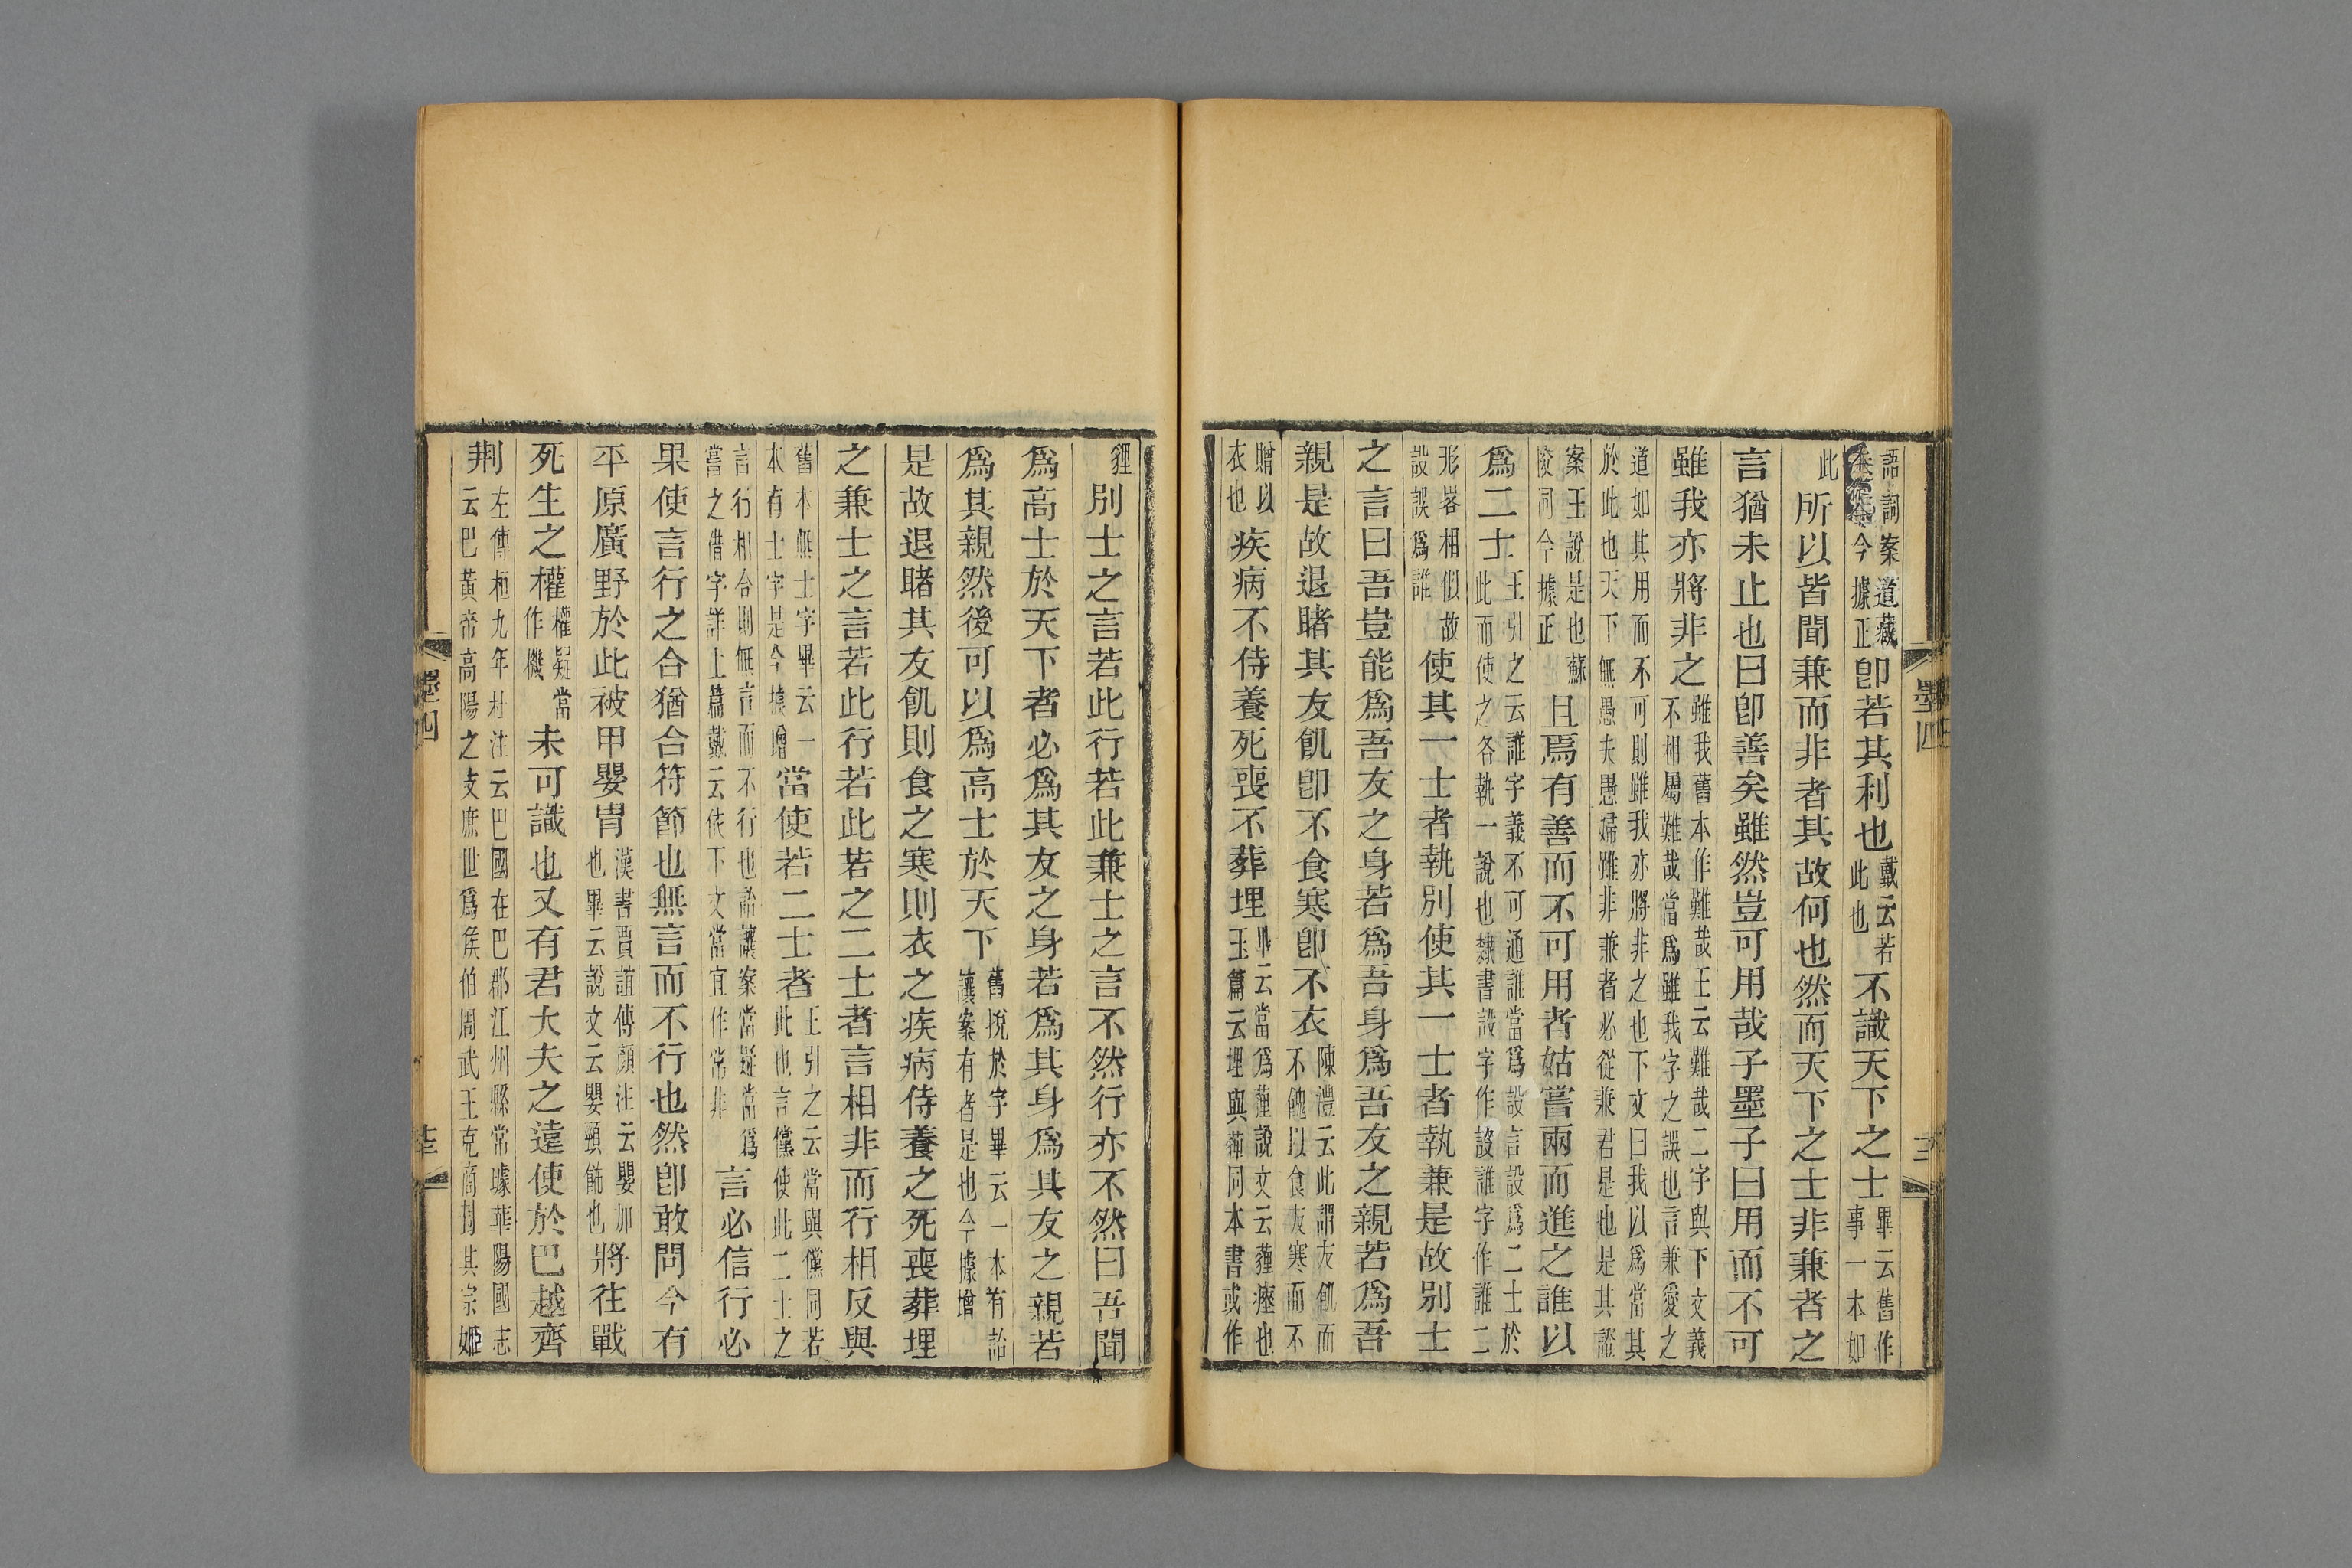 語詞案道藏
今據正
即若其利也
戴云若
此也
不識天下之士
畢云舊作
事一本如
此
所以皆聞兼而非者其故何也然而天下之士非兼者之
言猶未止也曰卽善矣雖然豈可用哉子墨子曰用而不可
雖我亦將非之
雖我舊本作難哉王云難哉二字與下文義
不相屬難哉當爲雖我字之誤也言兼愛之
道如其用而不可則雖我亦將非之也下文曰我以爲當其
於此也天下無愚夫愚婦雖非兼者必從兼君是也是其證
案王說是也蘇
校同今據正
且焉有善而不可用者姑嘗兩而進之誰以
爲二士
王引之云誰字義不可通誰當爲設言設爲二士於
此而使之各執一說也隸書設字作設誰字作誰二
形畧相似故
設誤爲誰
使其一士者執別使其一士者執兼是故別士
之言曰吾豈能爲吾友之身若爲吾身爲吾友之親若爲吾
親是故退睹其友飢卽不食寒卽不衣
陳澧云此謂友飢而
不餽以食友寒而不
贈以
衣也
疾病不侍養死喪不葬埋
畢云當爲薶說文云薶瘞也
玉篇云埋與薶同本書或作
墨四
貍
別士之言若此行若此兼士之言不然行亦不然曰吾聞
爲高士於天下者必爲其友之身若爲其身爲其友之親若
爲其親然後可以爲高士於天下
舊挩於字畢云一本有詒
讓案有者是也今據增
是故退睹其友飢則食之寒則衣之疾病侍養之死喪葬埋
之兼士之言若此行若此若之二士者言相非而行相反與
舊本無士字畢云一
本有士字是今據增
當使若二士者
王引之云當與儻同若
此也言儻使此二士之
言行相合則無言而不行也詒讓案當疑當爲
嘗之借字詳上篇戴云依下文當宜作常非
言必信行必
果使言行之合猶合符節也無言而不行也然卽敢問今有
平原廣野於此被甲嬰冑
漢書賈誼傳顏注云嬰加
也畢云說文云嬰頸飾也
將往戰
死生之權
權疑當
作機
未可識也又有君大夫之遠使於巴越齊
荆
左傳桓九年杜注云巴國在巴郡江州縣常璩華陽國志
云巴黃帝高陽之支庶世爲侯伯周武王克商封其宗姬
墨四